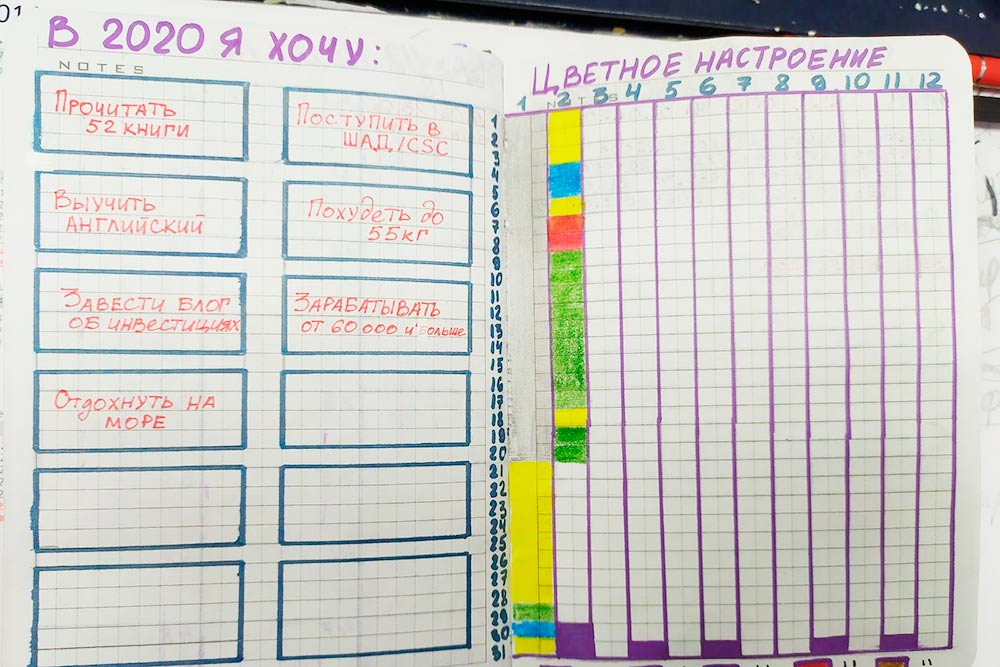 01
В 2020 Я ХОЧУ:
NOTES
ПРОЧИТАТЬ
52 КНИГИ
ПОСТУПИТЬ В
ШАД/CSC
ВЫУЧИТЬ
АНГЛИЙСКИЙ
ПОХУДЕТЬ ДО
55 КГ
ЗАВЕСТИ БЛОГ
ОБ ИНВЕСТИЦИЯХ
ЗАРАБАТЫВАТЬ
ОТ 60 000 И БОЛЬШЕ
ОТДОХНУТЬ НА
МОРЕ
ЦВЕТНОЕ НАСТРОЕНИЕ
NOTES
1 2 3 4 5 6 7 8 9 10 11 12
1
2
3
4
5
6
7
8
9
10
11
12
13
14
15
16
17
18
19
20
21
22
23
24
25
26
27
28
29
30
31